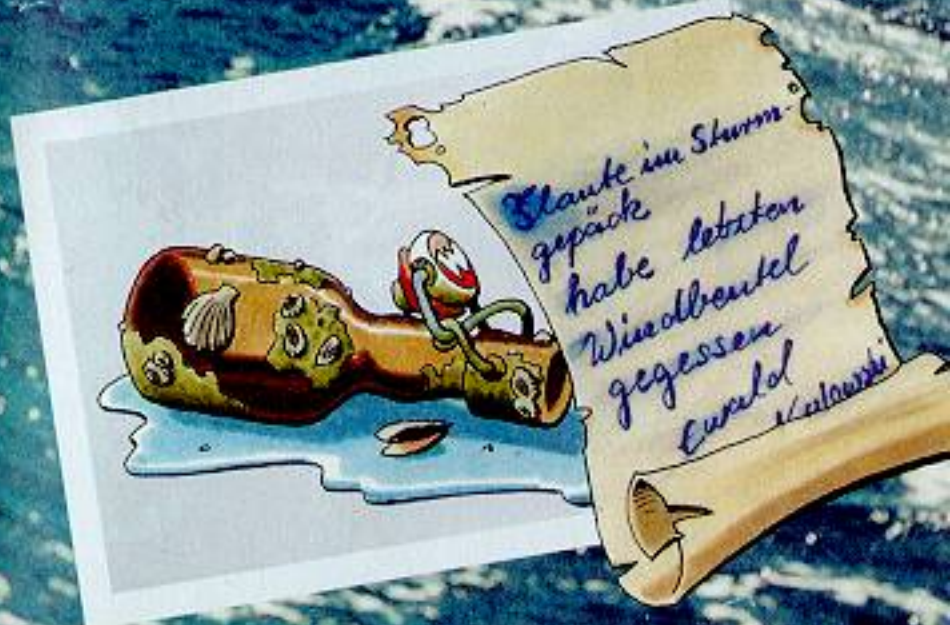 Flaute im Sturm-
gepäck
habe letzten
Windbeutel
gegessen
Ewald